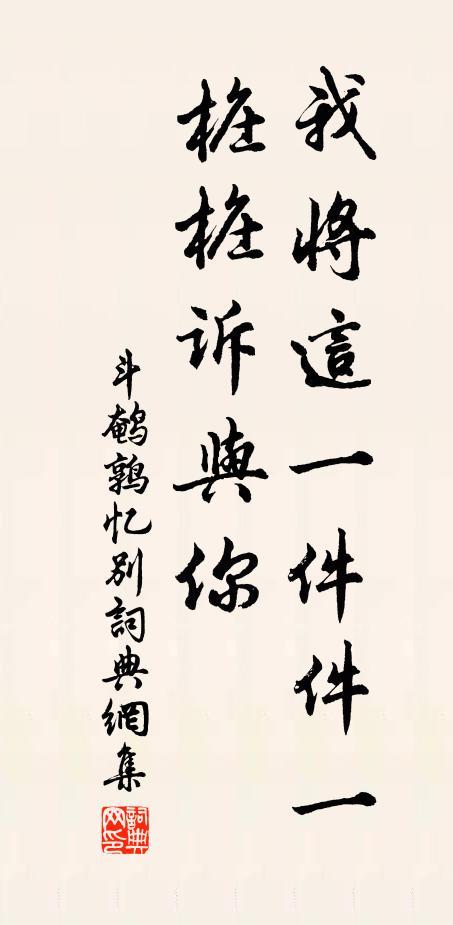 我將這一件件一
樁樁訴與你
斗鵪鶉忆别詞典網集
詞典网印